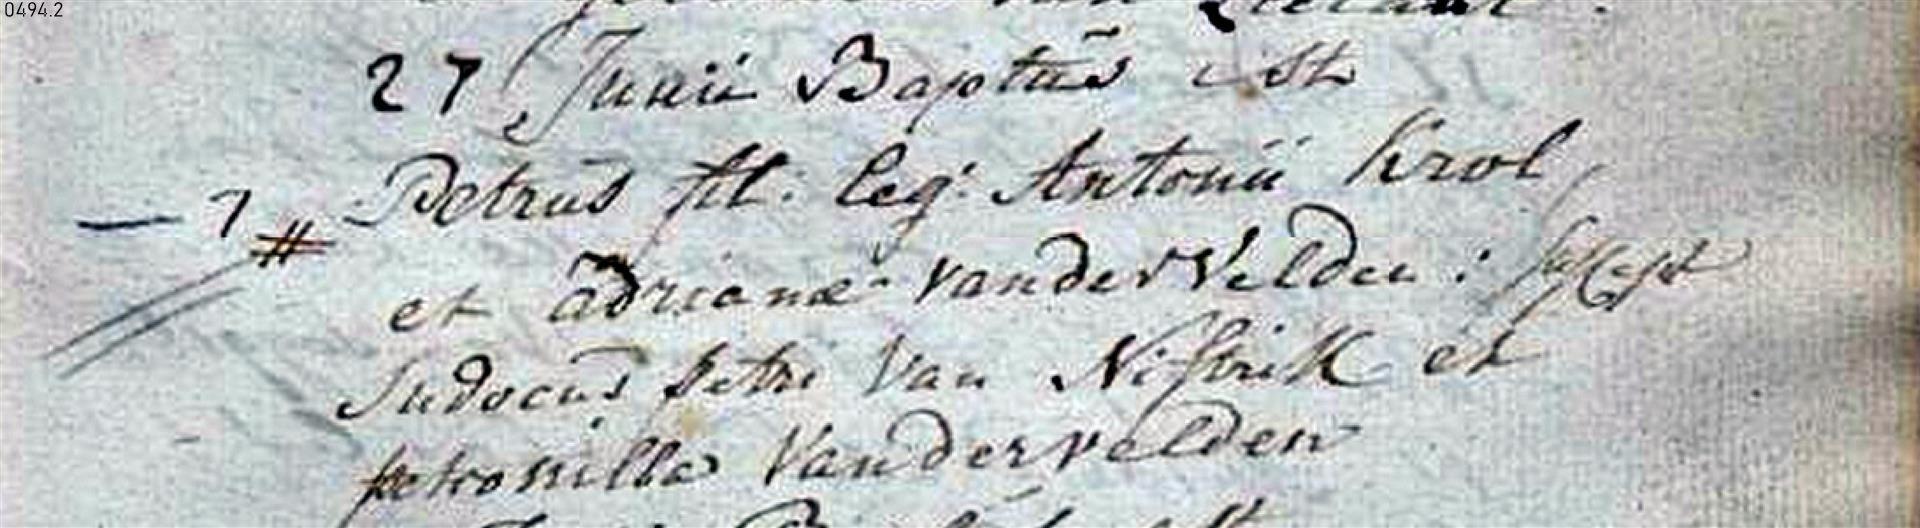 0494.2
27 Junii Baptūs est
Petrus fil: leg: Antonii Krol
— 7 #
et adrianæ van der Velden : suscept
Judocus petri van Nistrik et
petronilla Vandervelden